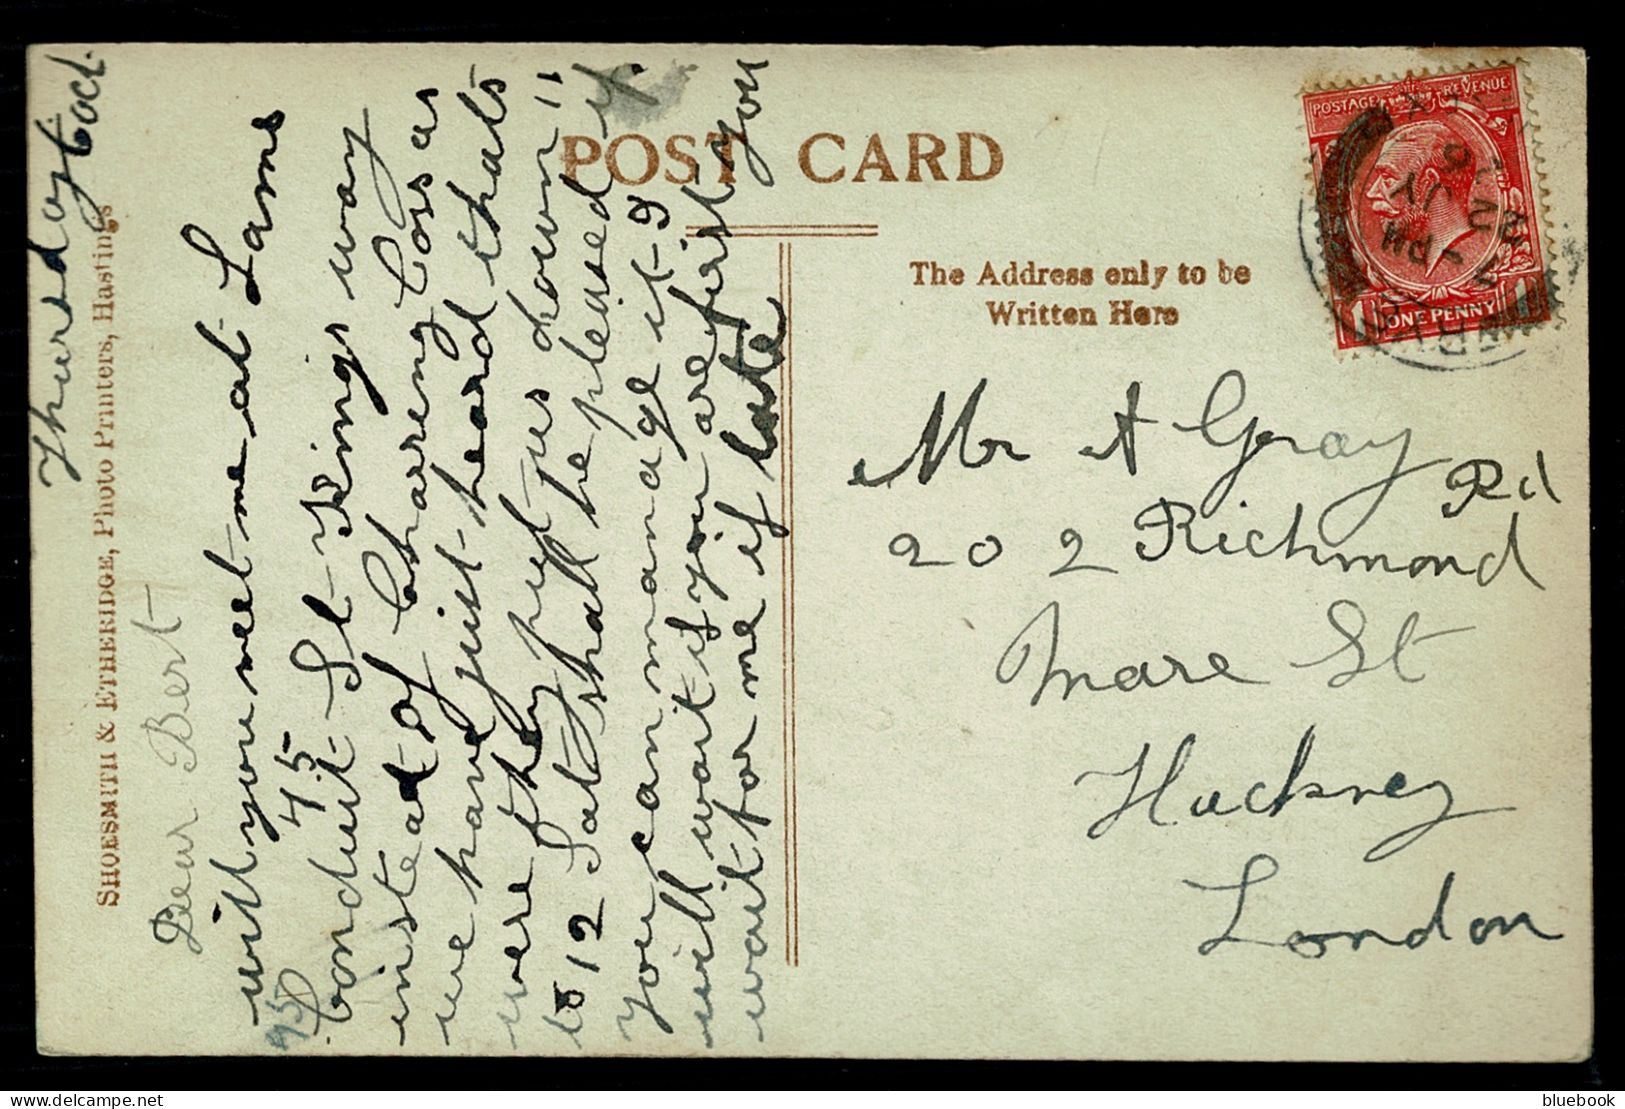 POST CARD
The Address only to be
Written Here
SHOESMITH & ETHERIDGE, Photo Printers, Hastings
POSTAGE REVENUE
1 ONE PENNY 1
7 - PM
2 JY
Thursday
Dear Bert
will you meet me at Lams
95 45
Conduit St Kings way
instead of Charring Coss as
we have just heard thats
were they put us down 11
to 12 Sat shall be pleased if
you can manage it 9
will wait if you are first you
wait for me if late
Mr A Gray
202 Richmond Rd
Mare St
Hackney
London
bluebook